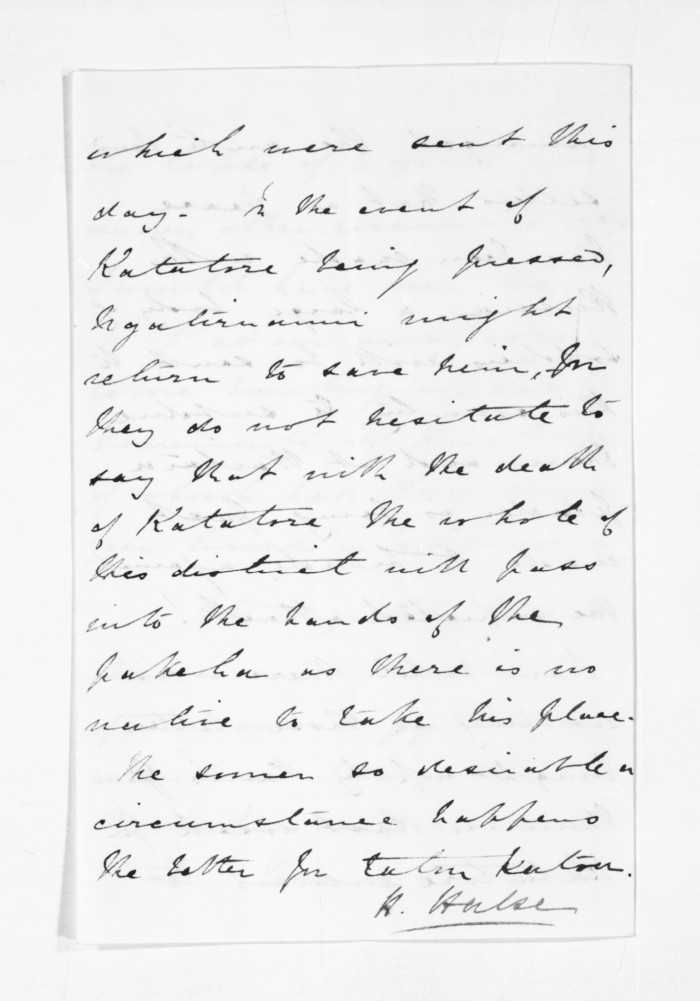 which were sent this
day. In the event of
Katatore being pressed,
Ngatiruanui might
return to save him, for
they do not hesitate to
say that with the death
of Katatore the whole of
this district will pass
into the hands of the
pakeha as there is no
native to take his place.
The sooner so desirable a
circumstance happens
the better for tatou katoa.
H. Halse